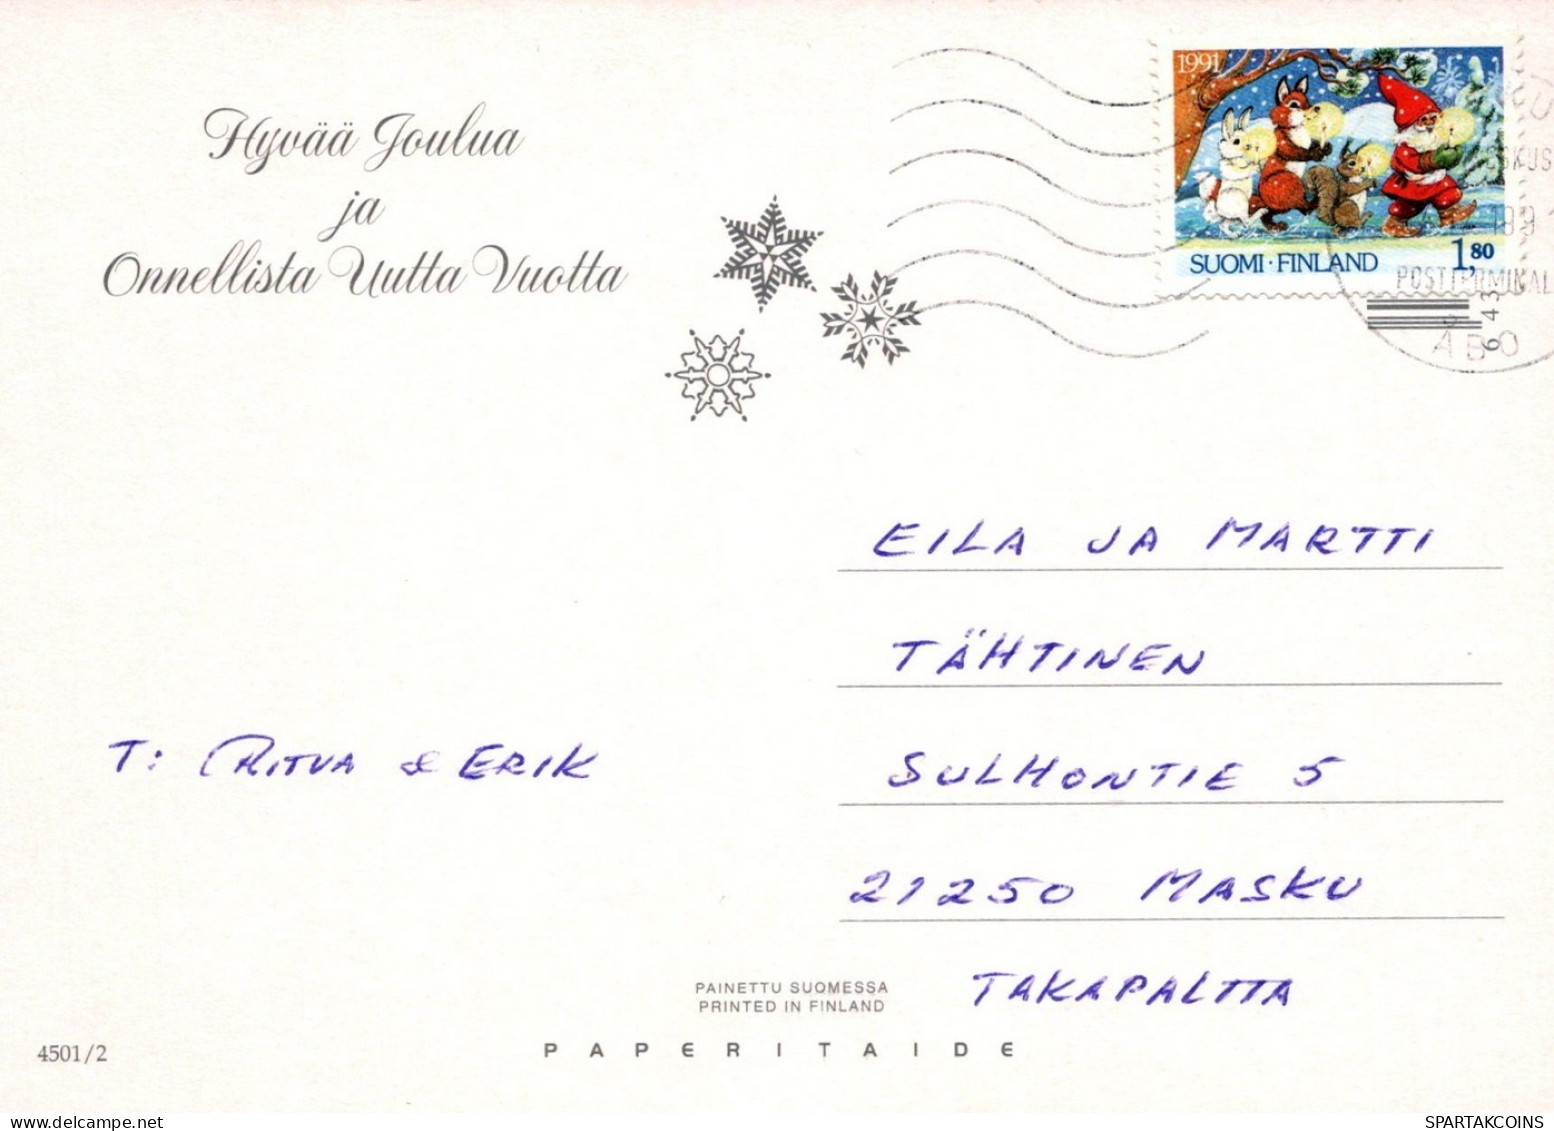 Hyvää Joulua
ja
Onnellista Uutta Vuotta
1991
SUOMI·FINLAND
1,80
1991
POSTTERMINAL
ÅBO
643
EILA JA MARTTI
TÄHTINEN
SULHONTIE 5
21250 MASKU
TAKAPALTTA
T: RITVA & ERIK
PAINETTU SUOMESSA
PRINTED IN FINLAND
4501/2
PAPERITAIDE
SPARTAKCOINS